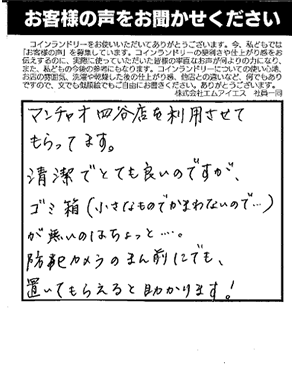 お客様の声をお聞かせください
コインランドリーをお使いいただいてありがとうございます。今、私どもでは
「お客様の声」を募集しています。コインランドリーの便利さや仕上がり感をお
伝えするのに、実際に使っていただいた皆様の率直なお声が何よりの力になり、
また、私どもの今後の参考にもなります。コインランドリーについての使い心地、
お店の雰囲気、洗濯や乾燥した後の仕上がり感、他店との違いなど、何でもあり
ですので、文でも似顔絵でもご自由にお書きください。ありがとうございます。
株式会社エムアイエス 社員一同
マンチャオ四谷店を利用させて
もらってます。
清潔でとても良いのですが、
ゴミ箱(小さなものでかまわないので…)
が無いのはちょっと…。
防犯カメラのまん前にでも、
置いてもらえると助かります!